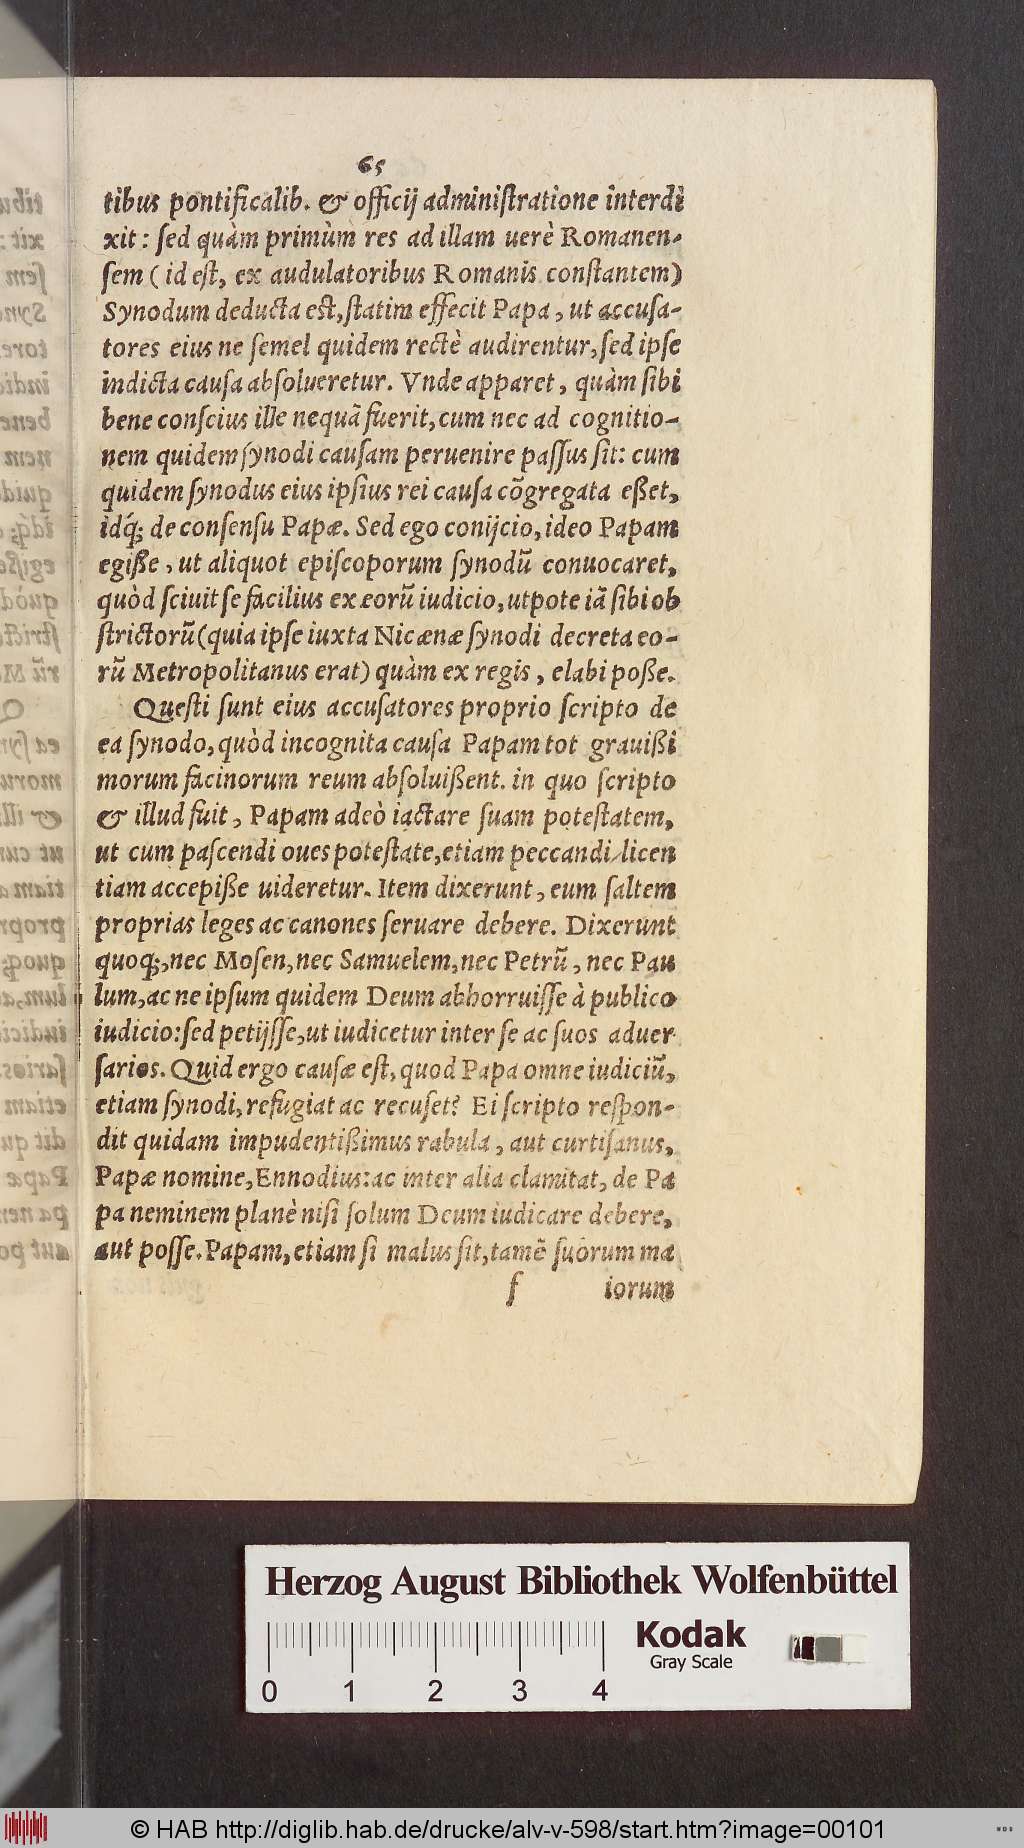 65
tibus pontificalib. & officij adminiſtratione interdi
xit: ſed quàm primùm res ad illam uerè Romanen-
ſem (id eſt, ex audulatoribus Romanis conſtantem)
Synodum deducta eſt, ſtatim effecit Papa, ut accuſa-
tores eius ne ſemel quidem rectè audirentur, ſed ipſe
indicta cauſa abſolueretur. Vnde apparet, quàm ſibi
bene conſcius ille nequã fuerit, cum nec ad cognitio-
nem quidem ſynodi cauſam peruenire paſſus ſit: cum
quidem ſynodus eius ipſius rei cauſa cõgregata eßet,
idq́; de conſenſu Papæ. Sed ego conijcio, ideo Papam
egiße, ut aliquot epiſcoporum ſynodũ conuocaret,
quòd ſciuit ſe facilius ex eorũ iudicio, utpote iã ſibi ob
ſtrictorũ (quia ipſe iuxta Nicænæ ſynodi decreta eo-
rũ Metropolitanus erat) quàm ex regis, elabi poße.
Queſti ſunt eius accuſatores proprio ſcripto de
ea ſynodo, quòd incognita cauſa Papam tot grauißi
morum facinorum reum abſoluißent. in quo ſcripto
& illud fuit, Papam adeò iactare ſuam poteſtatem,
ut cum paſcendi oues poteſtate, etiam peccandi licen
tiam accepiße uideretur. Item dixerunt, eum ſaltem
proprias leges ac canones ſeruare debere. Dixerunt
quoq;, nec Moſen, nec Samuelem, nec Petrũ, nec Pau
lum, ac ne ipſum quidem Deum abhorruiſſe à publico
iudicio: ſed petijſſe, ut iudicetur inter ſe ac ſuos aduer
ſarios. Quid ergo cauſæ eſt, quod Papa omne iudiciũ,
etiam ſynodi, refugiat ac recuſet? Ei ſcripto reſpon-
dit quidam impudentißimus rabula, aut curtiſanus,
Papæ nomine, Ennodius: ac inter alia clamitat, de Pa
pa neminem planè niſi ſolum Deum iudicare debere,
aut poſſe. Papam, etiam ſi malus ſit, tamẽ ſuorum ma
f iorum
Herzog August Bibliothek Wolfenbüttel
Kodak
Gray Scale
0 1 2 3 4
© HAB http://diglib.hab.de/drucke/alv-v-598/start.htm?image=00101